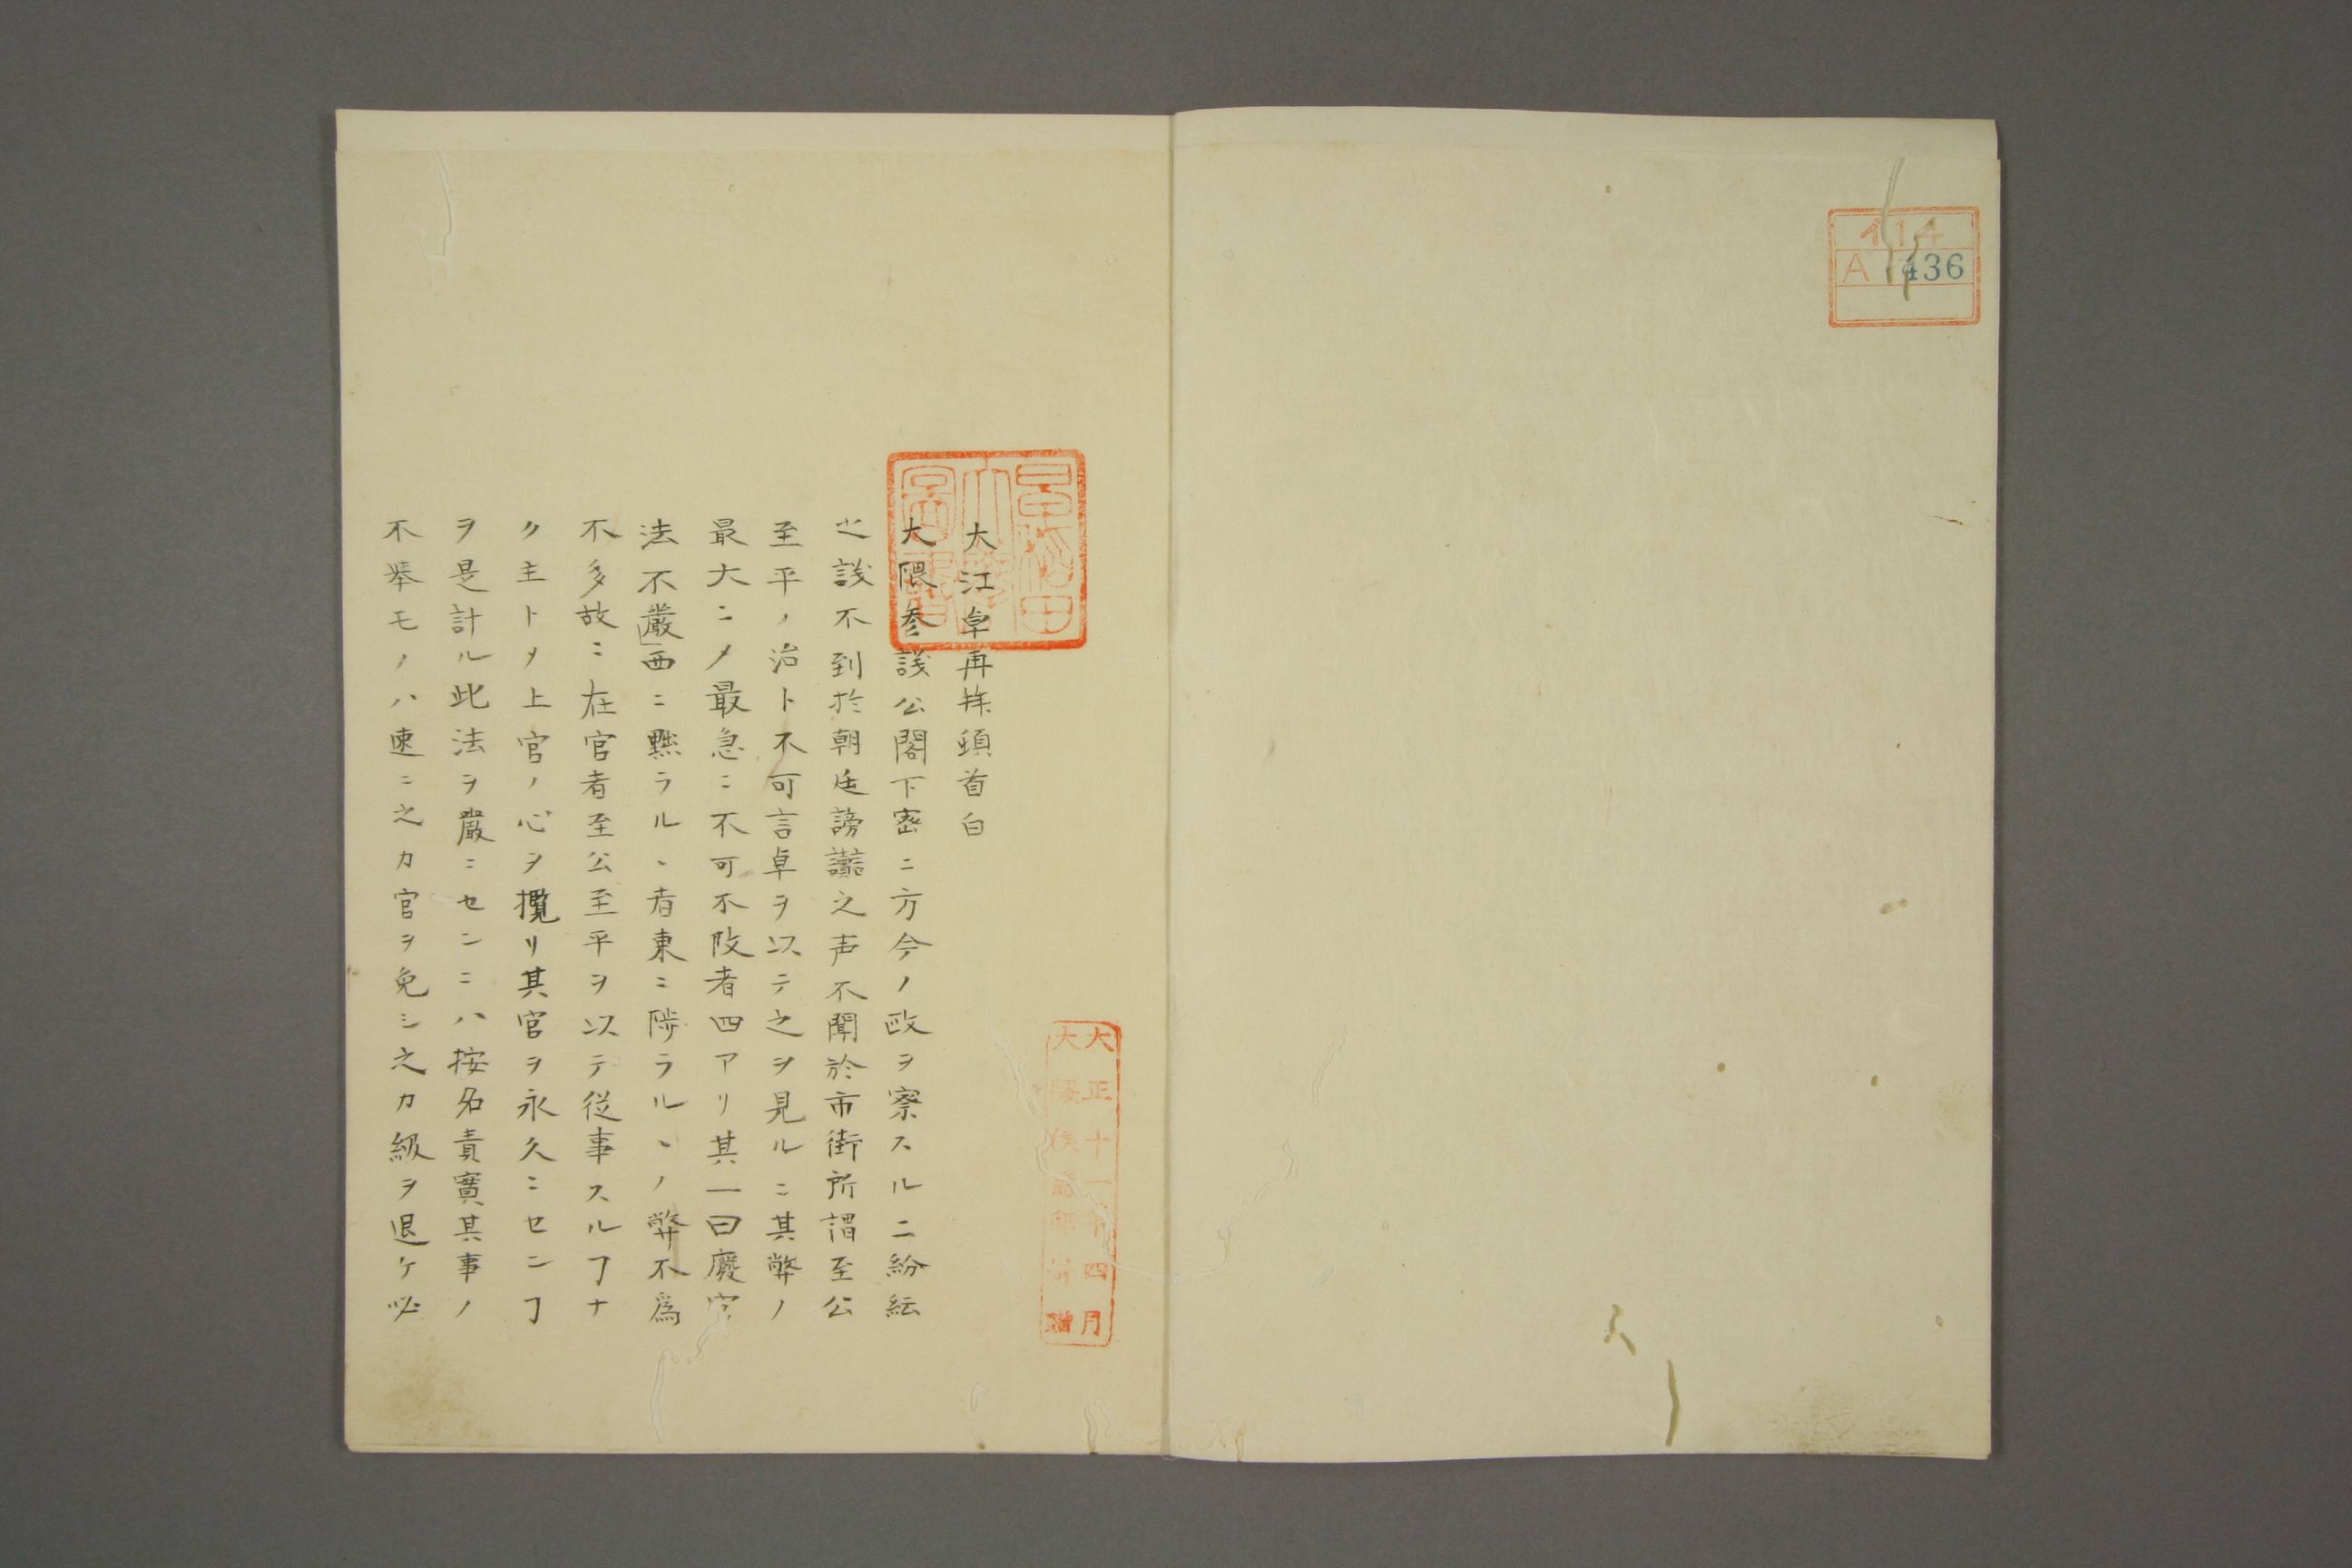 イ14
A 4436
早稲田
大學
圖書
大正十一年四月
大隈侯爵邸寄贈
大江卓再拝頓首白
大隈参議公閣下密ニ方今ノ政ヲ察スルニ紛紜
之談不到於朝廷謗讟之声不聞於市街所謂至公
至平ノ治ト不可言卓ヲ以テ之ヲ見ルニ其弊ノ
最大ニ〆最急ニ不可不改者四アリ其一曰廢官
法不嚴西ニ黜ラルヽ者東ニ陟ラルヽノ弊不爲
不多故ニ在官者至公至平ヲ以テ従事スルヿナ
ク主ト〆上官ノ心ヲ攬リ其官ヲ永久ニセンヿ
ヲ是計ル此法ヲ嚴ニセンニハ按名責實其事ノ
不挙モノハ速ニ之カ官ヲ免シ之カ級ヲ退ケ必